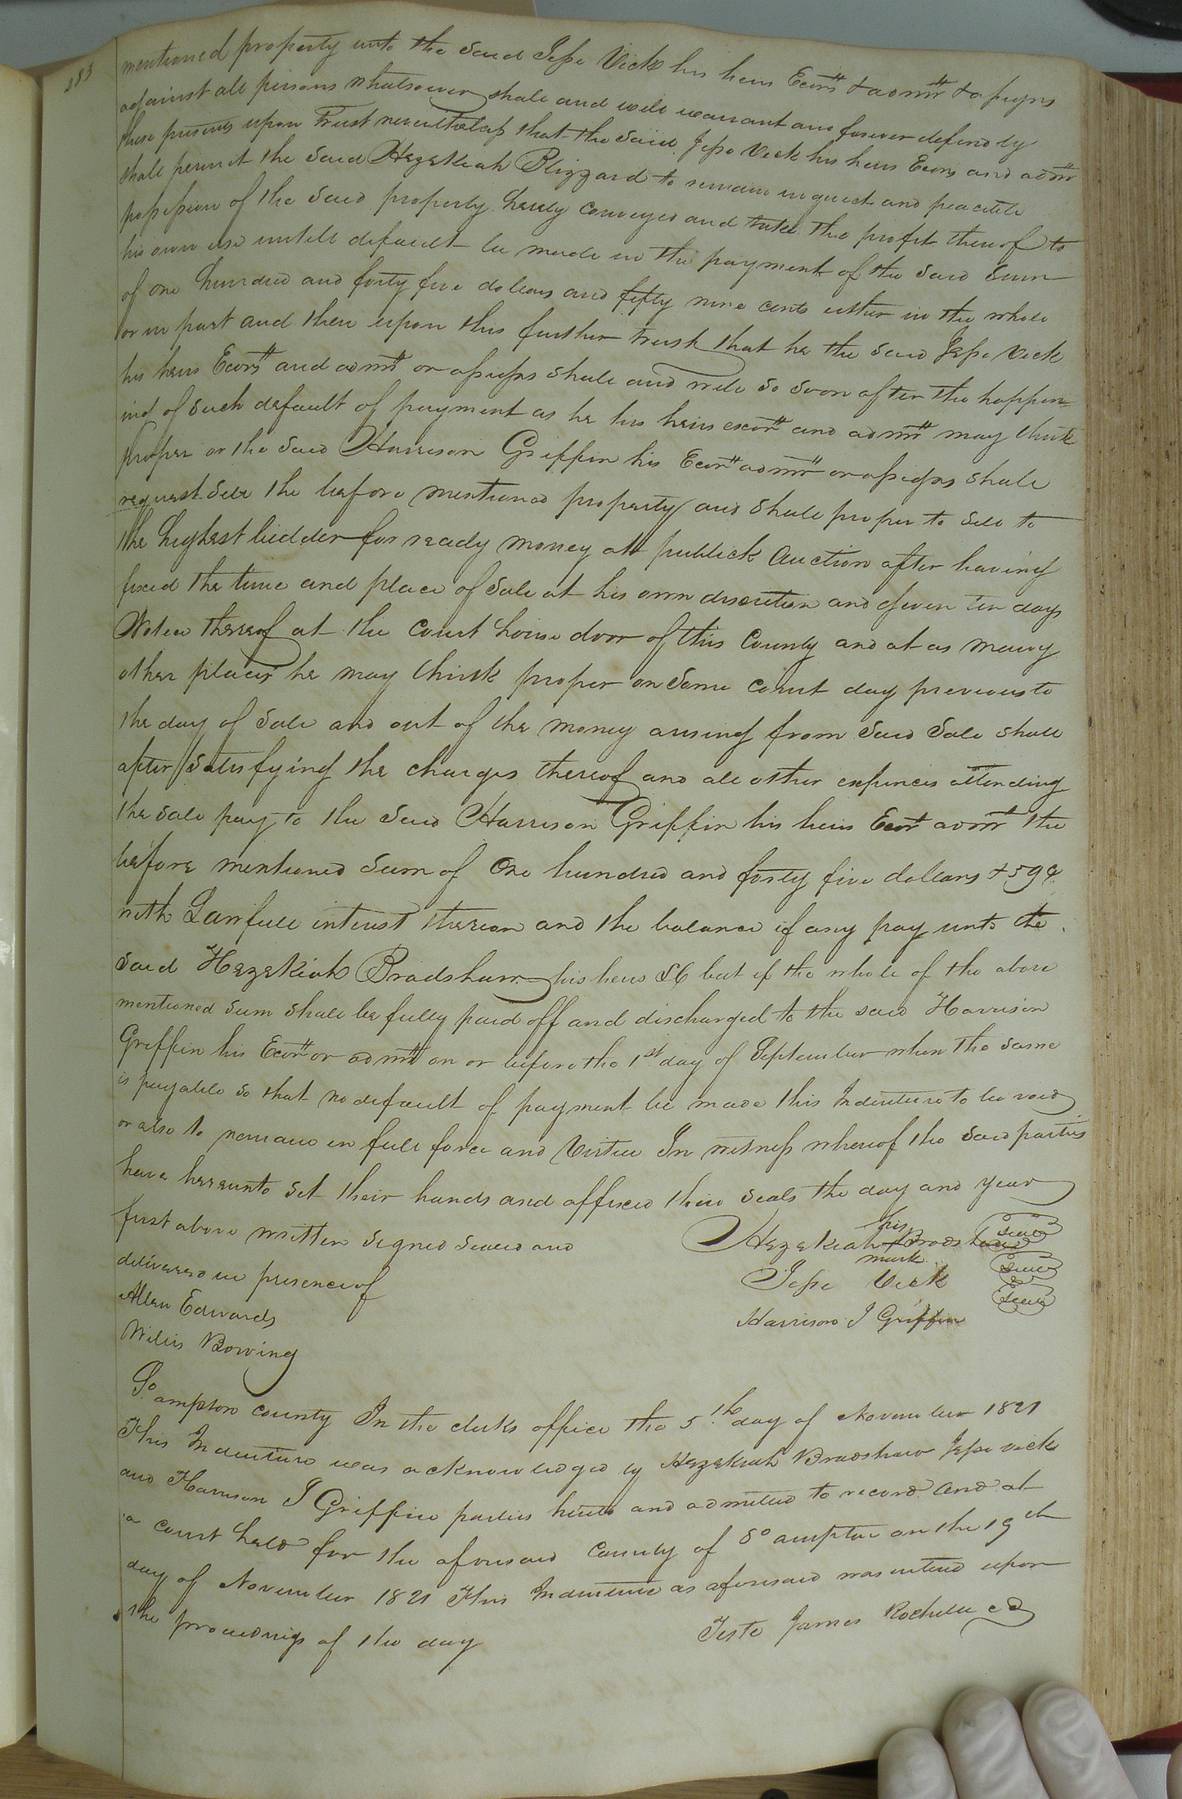 283
mentioned property unto the said Jesse Vick his heirs Ecors & admrs & assigns
against all persons whatsoever shall and will warrant and forever defend by
these presents upon Trust nevertheless that the said Jesse Vick his heirs Ecors and admr
shall permit the said Hezekiah Blizzard to remain in quiet and peacible
possession of the said property hereby conveyed and take the profit thereof to
his own use untill default be made in the payment of the said Sum
of one hundred and forty five dollars and fifty nine cents either in the whole
or in part and then upon this further trust that he the said Jesse Vick
his heirs Ecors and admrs or assigns shall and will so soon after the happen=
ing of such default of payment as he his heirs excors and admrs may think
proper or the said Harrison Griffin his Ecors admrs or assigns shall
request Sell the before mentioned property and shall proper to sell to
the highest bidder for ready money at publick Auction after having
fixed the time and place of Sale at his own discretion and given ten days
Notice thereof at the court house door of this County and at as many
other places he may think proper on Some court day previous to
the day of Sale and out of the money arising from said Sale shall
after satisfying the charges thereof and all other expences attending
the sale pay to the said Harrison Griffin his heirs Ecors admrs the
before mentioned Sum of One hundred and forty five dollars & 59¢
with Lawfull interest thereon and the balance if any pay unto the
said Hezekiah Bradshaw his heirs &C but if the whole of the above
mentioned sum shall be fully paid off and discharged to the said Harrison
Griffin his Ecors or admrs on or before the 1st day of September when the same
is payable so that no default of payment be made this Indenture to be void
or also to remain in full force and Virtue In witness whereof the said parties
have hereunto set their hands and affixed their seals the day and year
first above written signed sealed and
delivered in presence of
Allen Edwards
Willis Bowing
Hezekiah his mark Bradshaw Seal
Jesse Vick Seal
Harrison J Griffin Seal
So ampton county In the clerks office the 5th day of November 1821
This Indenture was acknowledged by Hezekiah Bradshaw Jesse Vick
and Harrison J Griffin parties hereto and admitted to record and at
a court held for the aforesaid County of So ampton on the 19th
day of November 1821 This Indenture as aforesaid was entered upon
the proceedings of the day
Teste James Rochelle CC